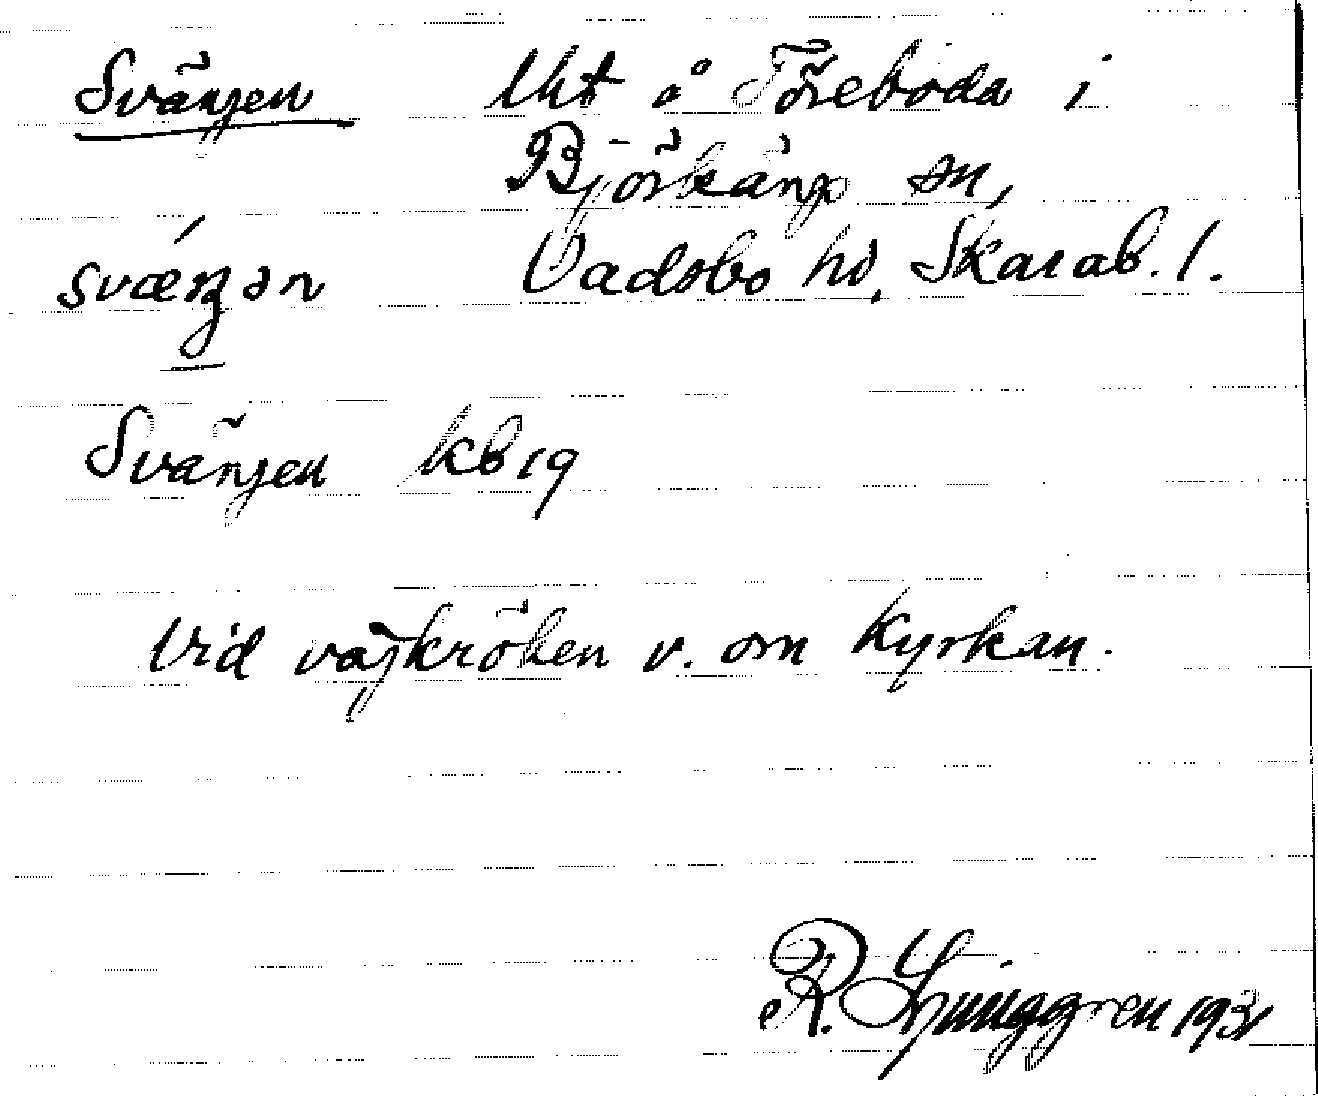 Svängen Uht å Föreboda i
Björkängs sn,
svæŋən Vadsbo hd, Skarab. l.
Svängen kb 19
Vid vägkröken v. om kyrkan.
R. Ljunggren 1931